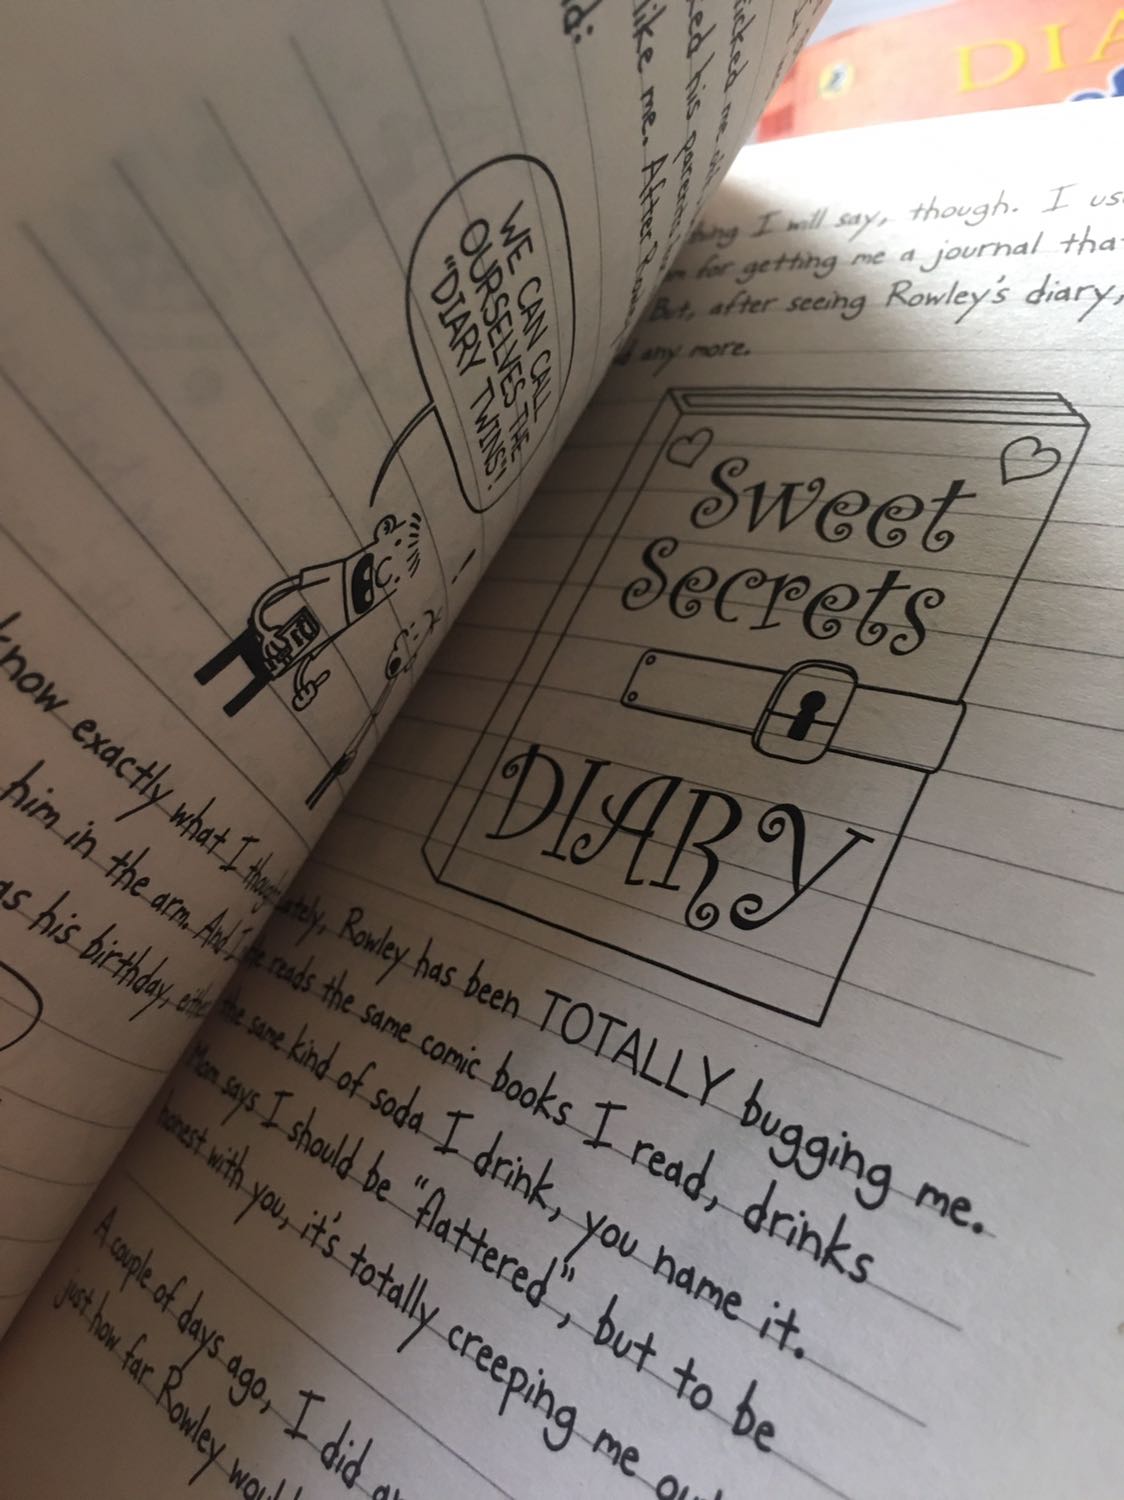 like me. After
WE CAN CALL
OURSELVES THE
"DIARY TWINS"!
know exactly what I
him in the arm. And
as his birthday,
DIA
I will say, though. I
for getting me a journal
But, after seeing Rowley's diary,
any more.
Sweet
Secrets
DIARY
Rowley has been TOTALLY bugging me.
reads the same comic books I read, drinks
the same kind of soda I drink, you name it.
Mom says I should be "flattered", but to be
honest with you, it's totally creeping me
A couple of days ago, I did
just how far Rowley